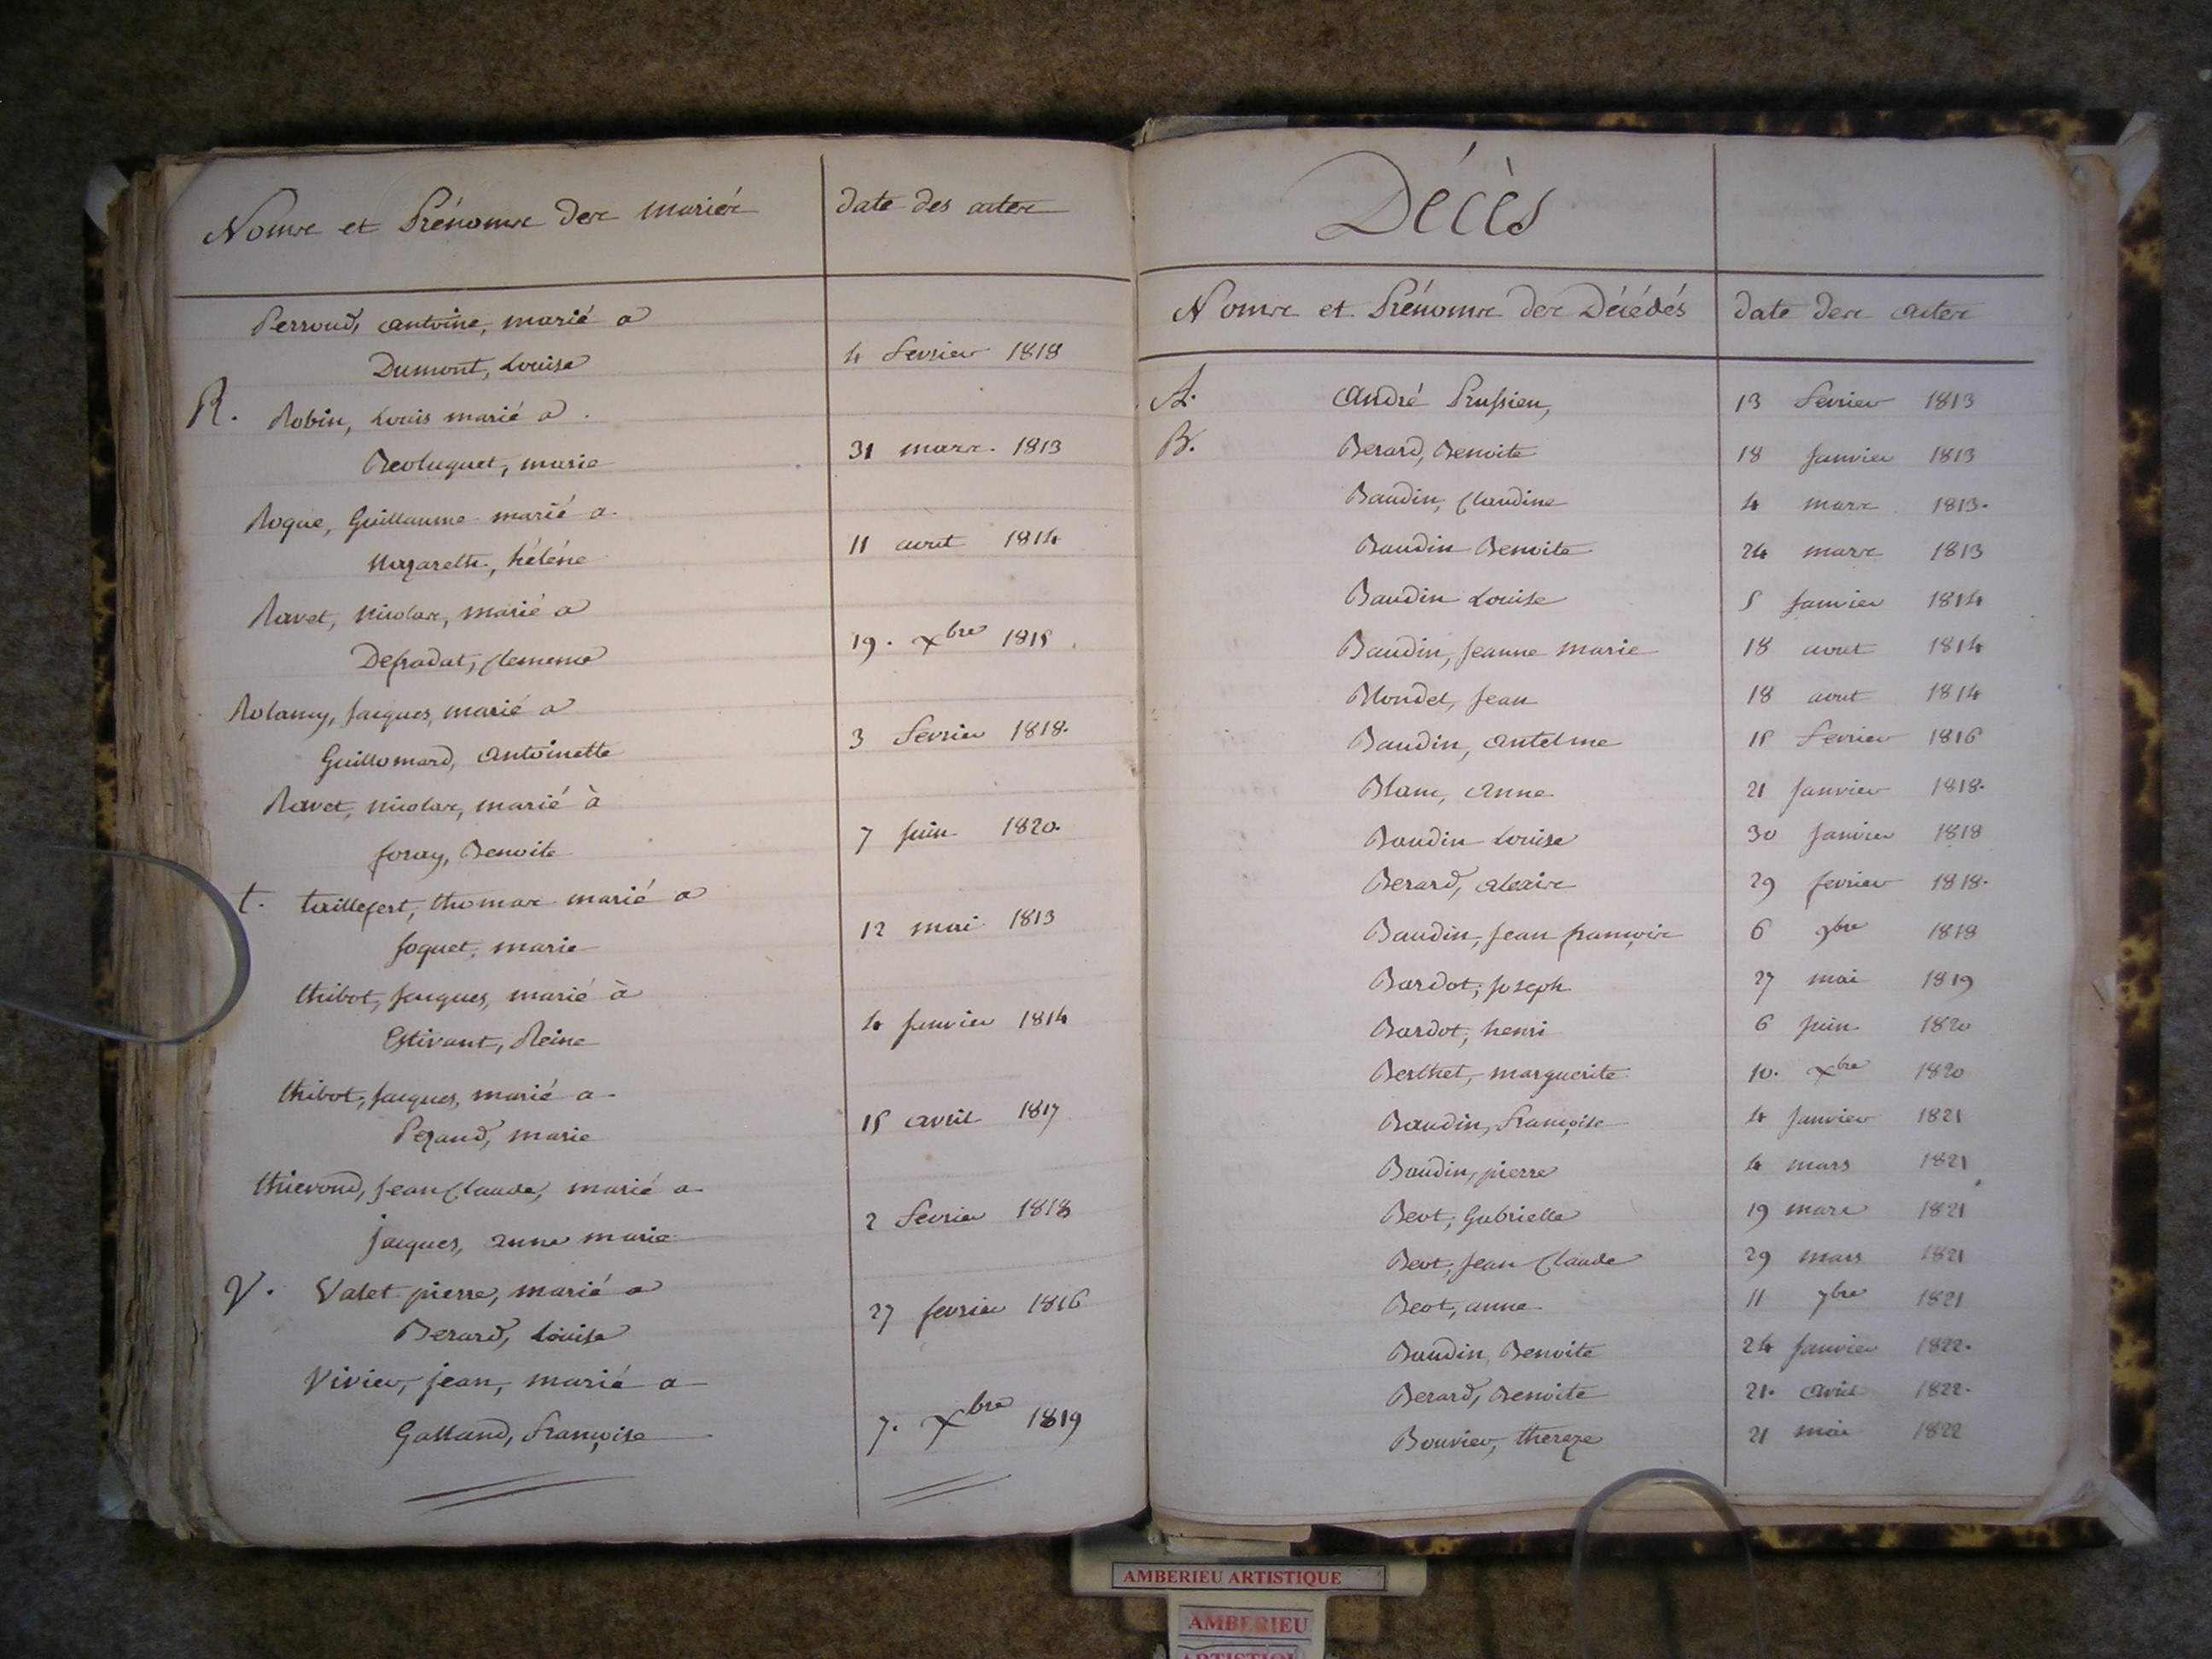 Noms et Prénoms des mariés
date des actes
Perroud, antoine, marié a
Dumont, Louise
4 fevrier 1818
R. Robin, Louis marié a
Breoluguet, marie
31 mars. 1813
Roque, Guillaume marié a
Nazareth, héléne
11 aout 1814
Ravet, nicolas, marié a
Defradat, clemence
19. Xbre 1815
Rolancy, Jacques, marié a
Guillomard, antoinette
3 fevrier 1818.
Ravet, nicolas, marié à
foray, Benoite
7 Juin 1820.
t. taillefert, thomas marié a
Joquet, marie
12 mai 1813
thibot, Jacques, marié à
Estivant, Reine
4 Janvier 1814
thibot, Jacques, marié a
Pezaud, marie
15 avril 1817
thievond, Jean Claude, marié a
jacques, anne marie
2 fevrier 1818
V. Valet pierre, marié a
Berard, Louise
27 fevrier 1816
Vivier, jean, marié a
Galland, françoise
7. Xbre 1819
Décès
Noms et Prénoms des Décédés
date des actes
A. André Prussien, 13 fevrier 1813
B. Berard, Benoite 18 Janvier 1813
Baudin, Claudine 4 mars 1813.
Baudin Benoite 24 mars 1813
Baudin Louise 5 Janvier 1814
Baudin, Jeanne marie 18 aout 1814
Blondet, Jean 18 aout 1814
Baudin, antelme 15 fevrier 1816
Blanc, anne 21 Janvier 1818.
Baudin Louise 30 Janvier 1818
Berard, alexis 29 fevrier 1818.
Baudin, Jean françois 6 9bre 1818
Bardot, Joseph 27 mai 1819
Bardot, henri 6 Juin 1820
Berthet, marguerite 10. Xbre 1820
Baudin, françoise 4 Janvier 1821
Baudin, pierre 4 mars 1821
Beot, Gabrielle 19 mars 1821
Beot, Jean Claude 29 mars 1821
Beot, anne 11 7bre 1821
Baudin, Benoite 24 Janvier 1822.
Berard, Benoite 21. avril 1822.
Bouvier, thereze 21 mai 1822
AMBERIEU ARTISTIQUE
AMBERIEU
ARTISTIQU